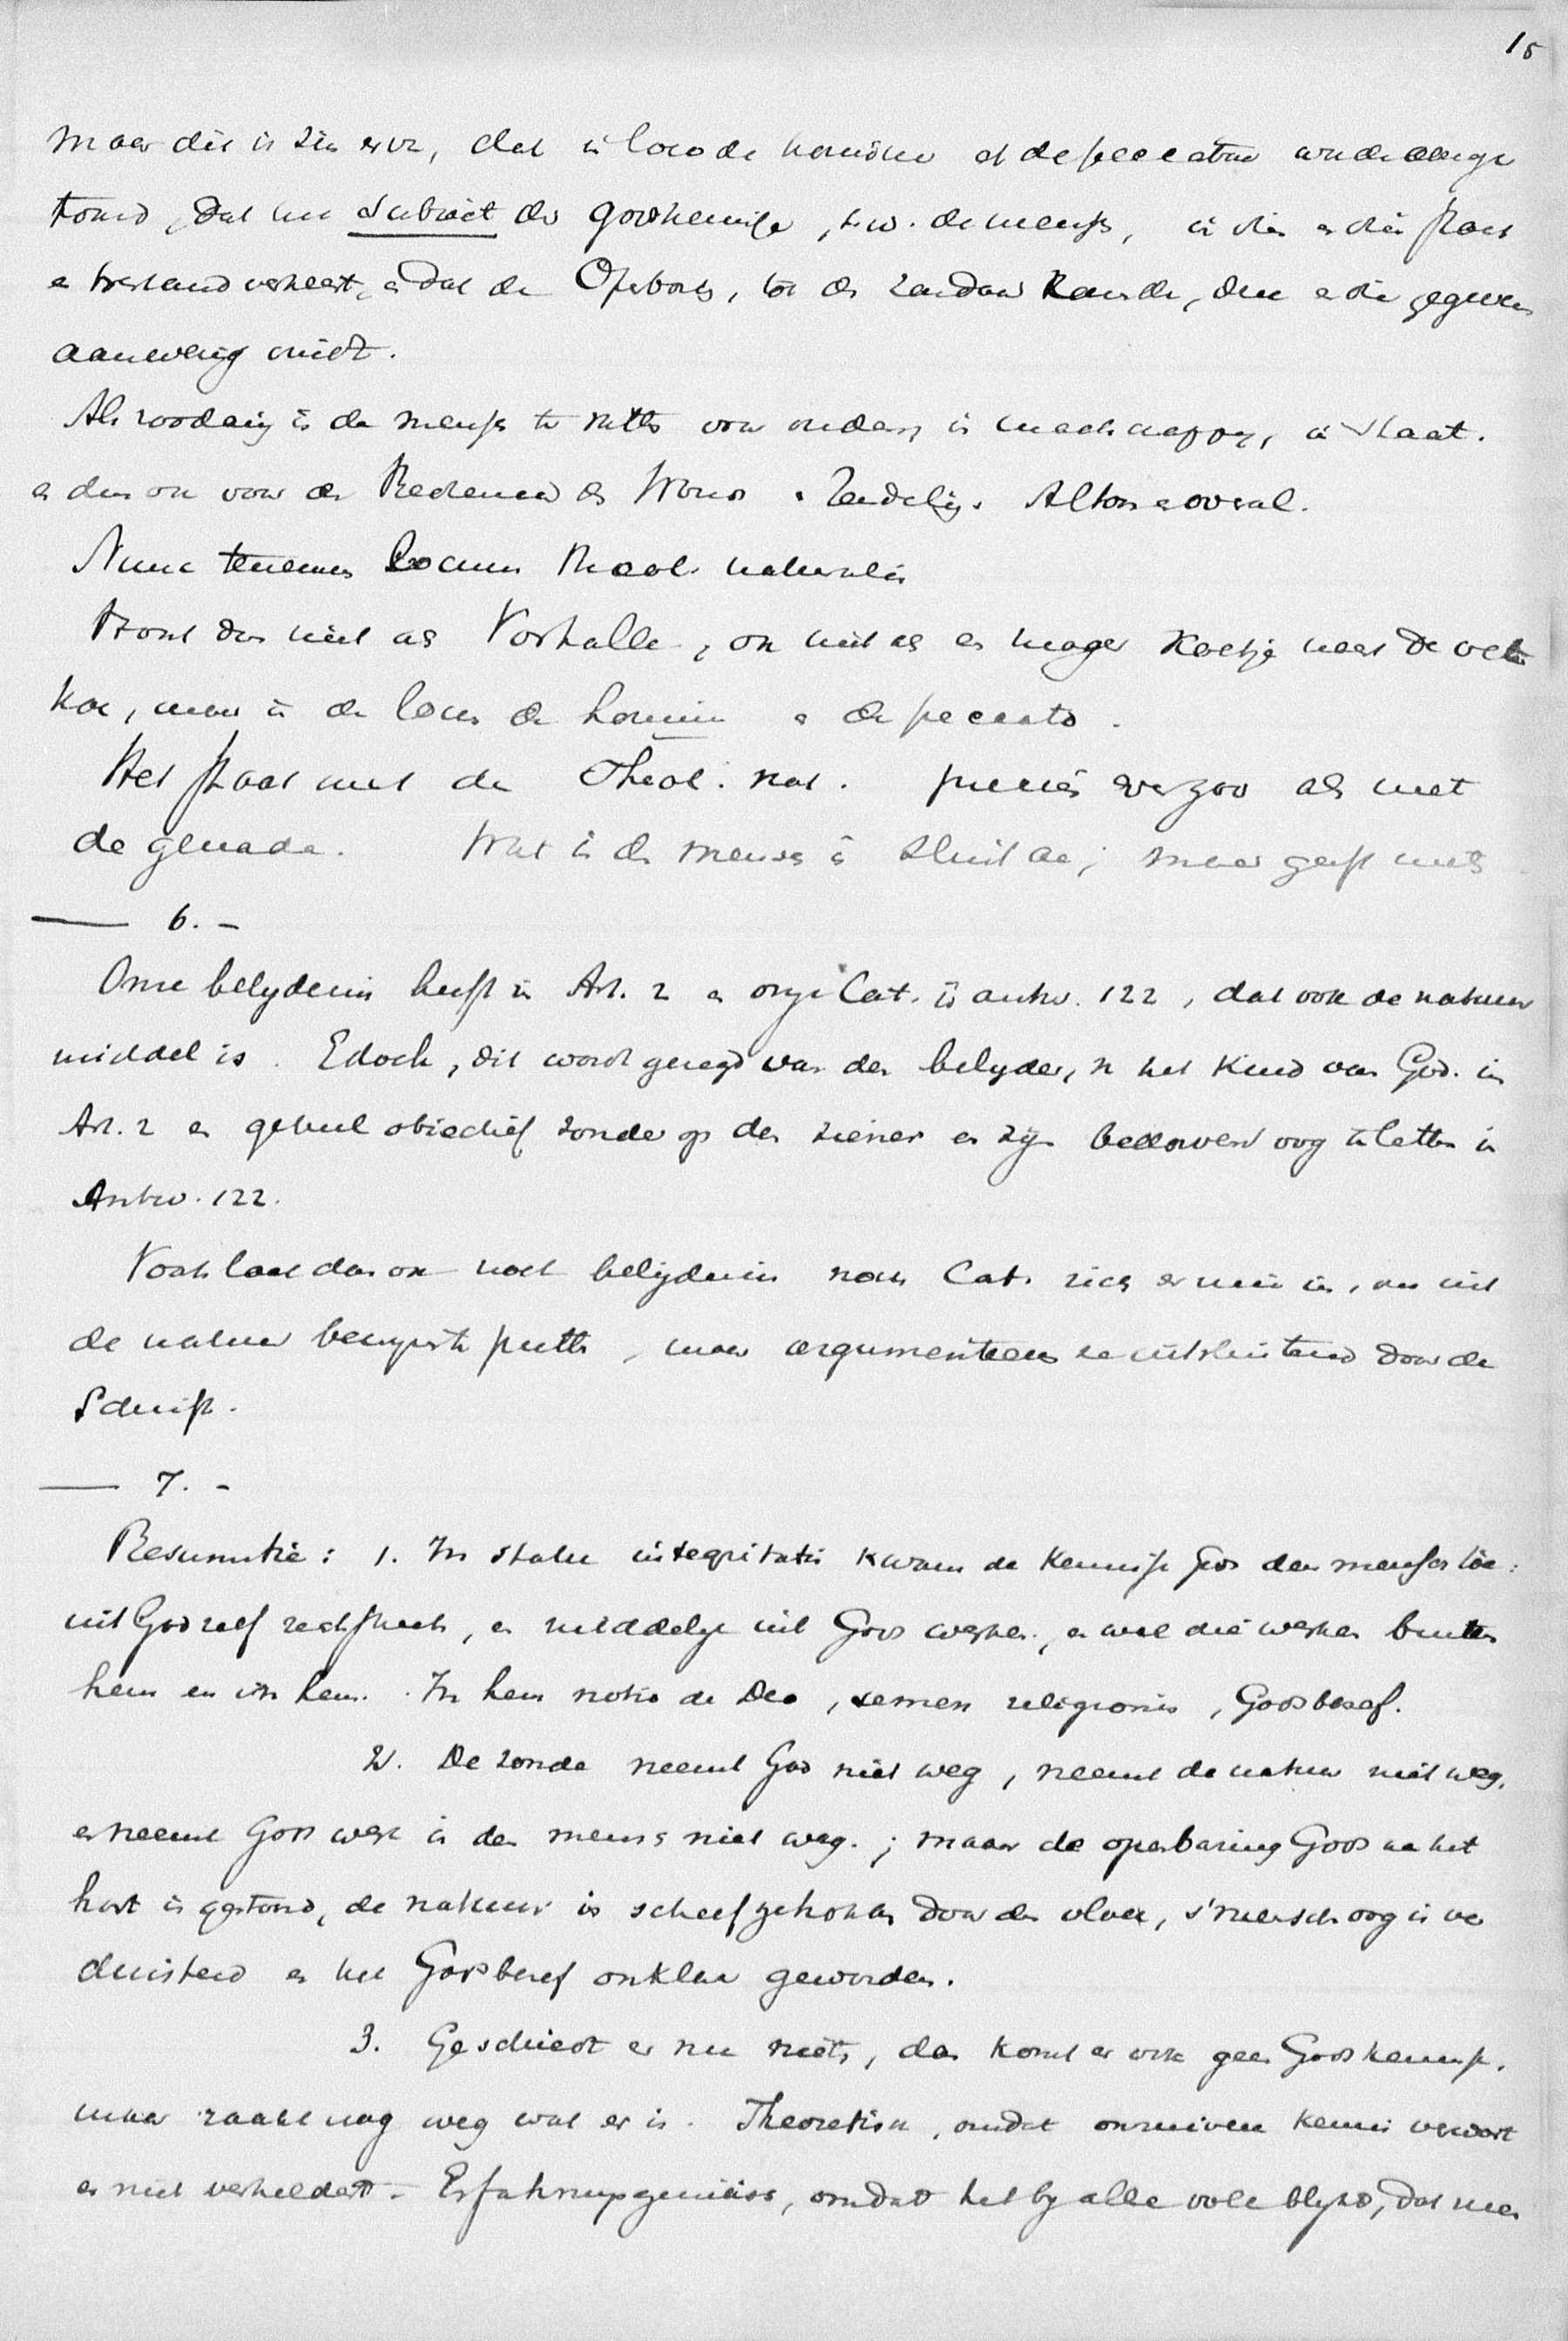 15
maar dit is zin ervan, dat in loco de homine et de peccato worde aange
toond, dat het subiect der godskennisse, t.w. de mensch, in dien en dien staat
en toestand verkeert, en dat de Openb, tot den zondaar komende, deze en die gegevens
aanwezig vindt.
Als zoodanig is de mensch te nemen voor onderwijs in maatschappij, in staat.
en dus ook voor de Bediening des Woords. Zending. Altoos en overal.
Nunc tenemus locum theol. naturalis
Komt dus niet als Vorhalle, ook niet als een mager koetje naast de vette
koe, maar in den locus de homine en de peccato.
Het staat met de Theol. nat. precies even zoo als met
de genade. Wat in den mensch is sluit ae; maar geeft niets
6. -
Onze belydenis heeft in Art. 2 en onze Cat. in antw. 122, dat ook de natuur
middel is. Edoch, dit wordt gezegd van den belyder, het kind van God in
Art. 2 en geheel objectief zonder op den ziener en zijn bedorven oog te letten in
Antw. 122.
Voorts laat dan ook noch belijdenis noch Cat. zich er mee in, om uit
de natuur bewijs te putten, maar argumenteeren ze uitsluitend door de
Schrift.
7. -
Resumtie: 1. In statu integritatis kwam de kennisse Gods den mensch toe:
uit God zelf rechtstreeks, en middelyk uit Gods werken, en wel die werken buiten
hem en in hem. In hem notio de Deo, semen religionis, Godsbesef.
2. De zonde neemt God niet weg, neemt de natuur niet weg,
en neemt Gods werk in den mensch niet weg.; maar de openbaring Gods aan het
hart is gestoord, de natuur is scheef getrokken door den vloek, s'menschen oog is ver
duisterd en het Godsbesef onklaar geworden.
3. Geschiedt er nu niets, dan komt er ook geen Godskennisse.
maar raakt nog weg wat er is. Theoretisch, omdat onzuivere kennis verwart
en niet verheldert. Erfahrungsgemäss, omdat het by alle volk blykt, dat men